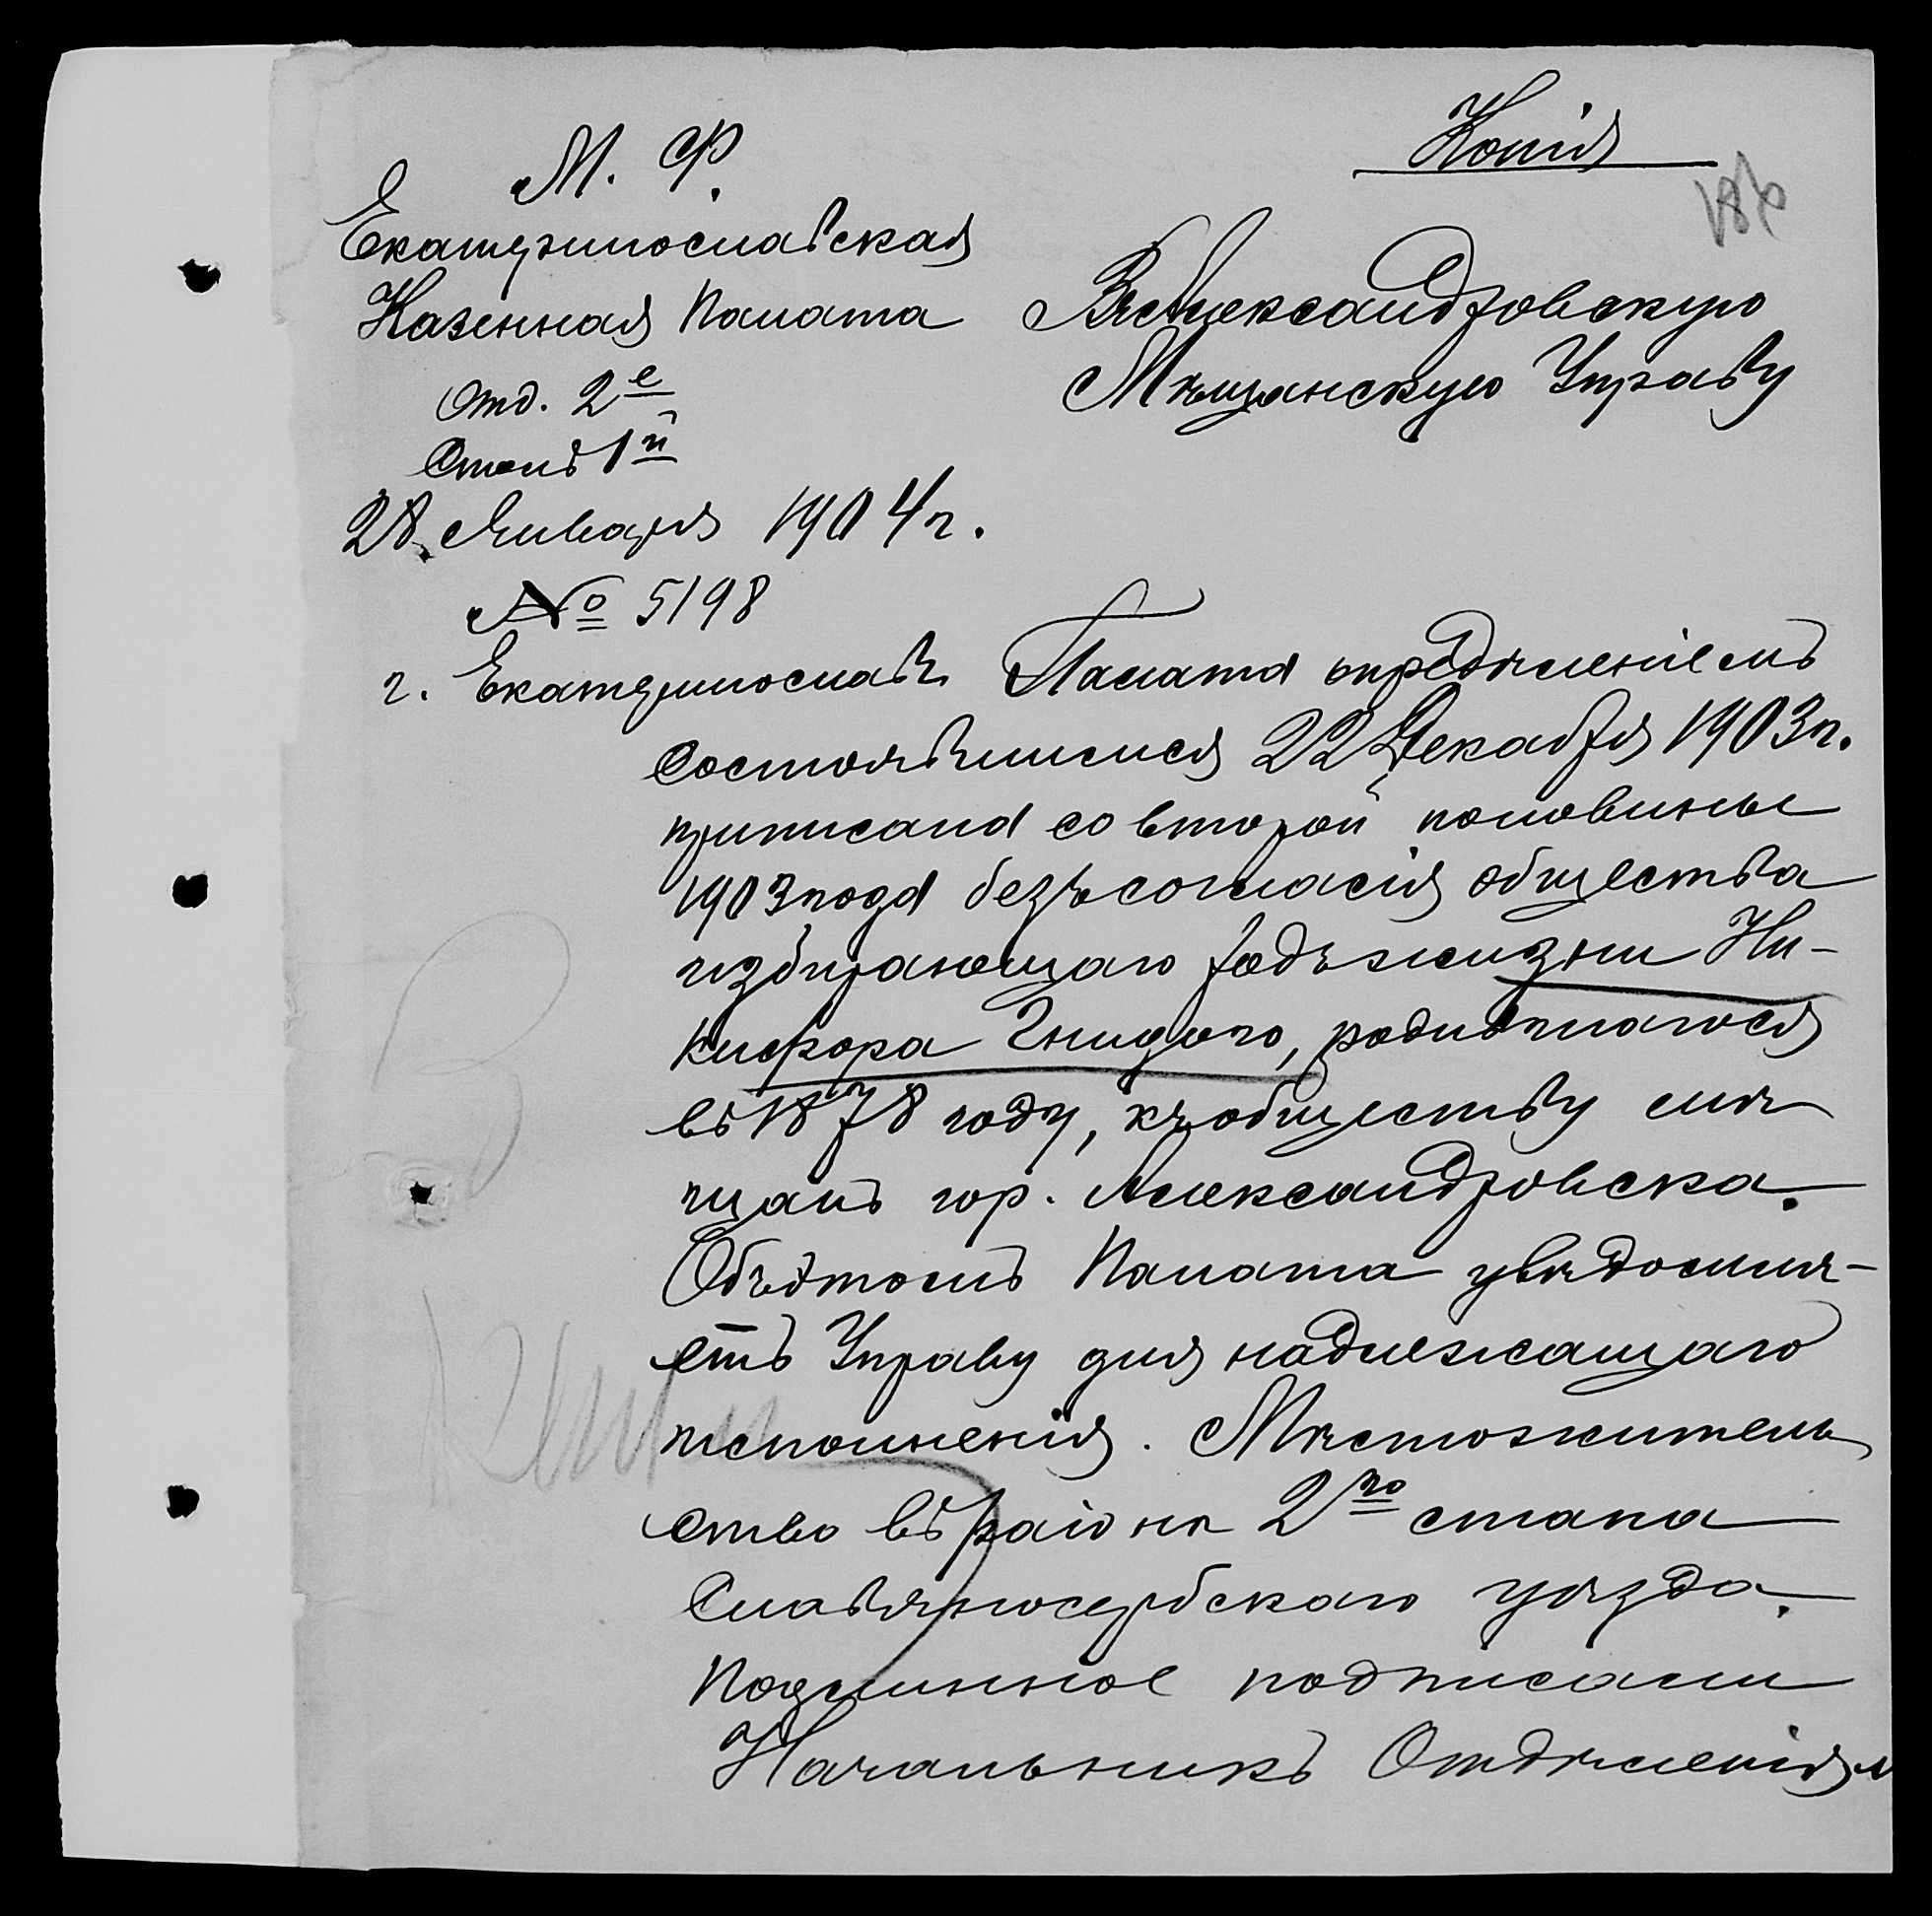 Копія
М. Ф.
Екатеринославская
Казенная Палата
Отд. 2е
Столъ 1й
28 Января 1904 г.
№ 5198
г. Екатеринославъ
Въ Александровскую
Мѣщанскую Управу
Палата опредѣленіемъ
состоявшимся 22 Декабря 1903 г.
приписала со второй половины
1903 года безъ согласія общества
избирающаго родъ жизни Ни-
кифора Гнидого, родившагося
въ 1878 году, къ обществу мѣ
щанъ гор. Александровска.
Объ этомъ Палата увѣдомля-
етъ Управу для надлежащаго
исполненія. Мѣстожитель
ство въ раіонѣ 2го стана
Славяносербскаго уѣзда.
Подлинное подписали
Начальникъ Отдѣленія